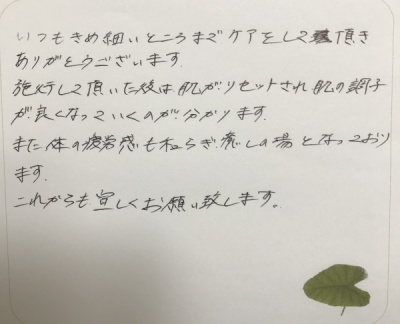 いつもきめ細いところまでケアをして頂き
ありがとうございます.
施術して頂いた後は肌がリセットされ肌の調子
が良くなっていくのが分かります.
また体の疲労感も和らぎ癒しの場となっており
ます.
これからも宜しくお願い致します。